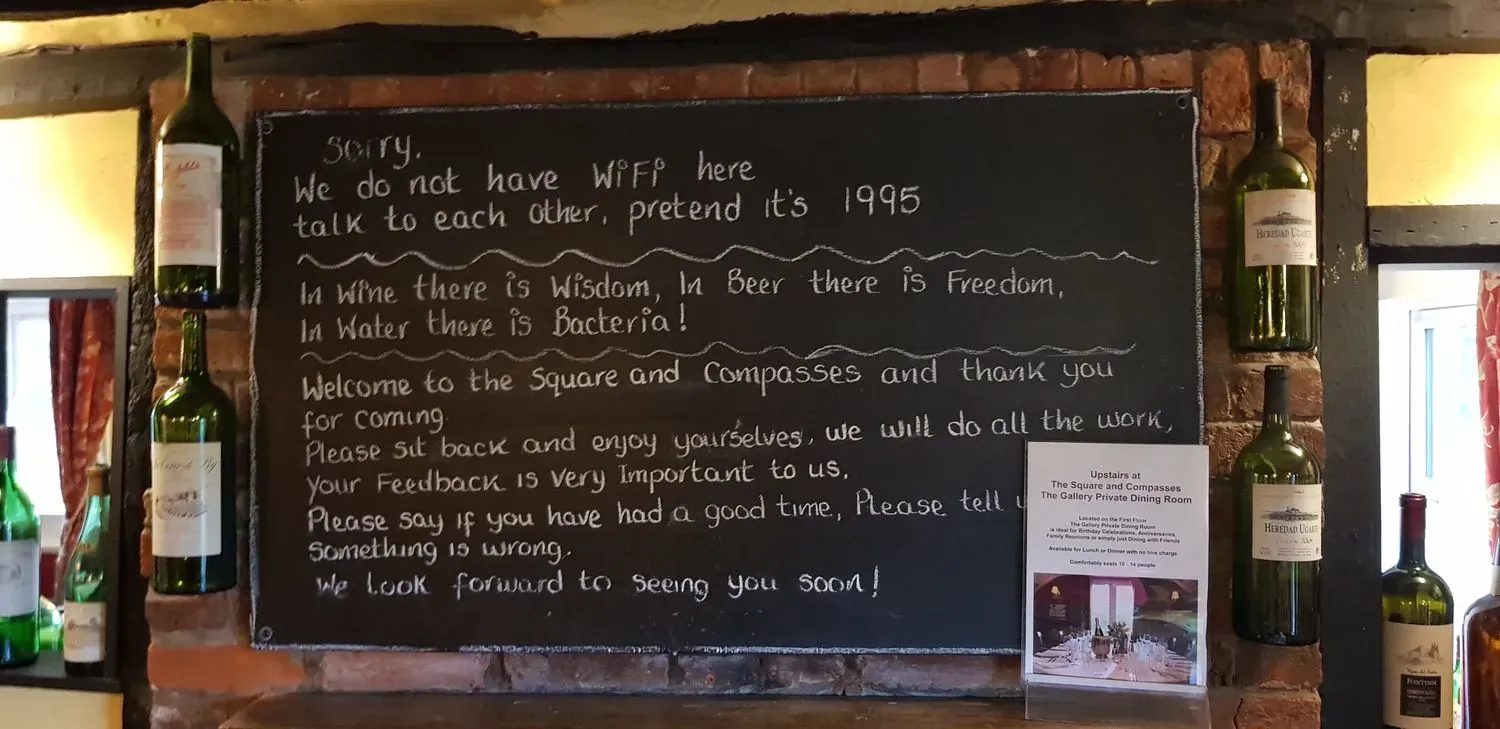 Sorry.
We do not have WiFi here
talk to each other, pretend it's 1995
In Wine there is Wisdom, In Beer there is Freedom,
In Water there is Bacteria!
Welcome to the Square and Compasses and thank you
for coming.
Please sit back and enjoy yourselves, we will do all the work,
Your Feedback is very Important to us.
Please say if you have had a good time, Please tell u
Something is wrong.
We look forward to seeing you soon!
Upstairs at
The Square and Compasses
The Gallery Private Dining Room
Located on the First Floor
The Gallery Private Dining Room
is ideal for Birthday Celebrations, Anniversaries,
Family Reunions or simply just Dining with Friends
Available for Lunch or Dinner with no hire charge
Comfortably seats 10 - 14 people
Penfolds
HEREDAD UGARTE
HEREDAD UGARTE
FONTODI